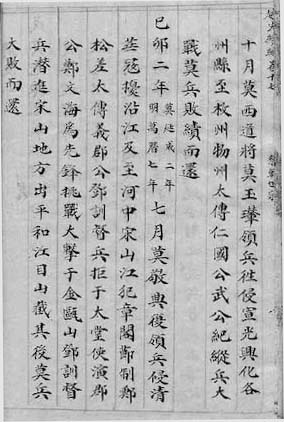 十月莫西道將莫玉璉領兵徃侵宣光興化各
州縣至枚州物州太傅仁國公武公紀縱兵大
戰莫兵敗績而還
己卯二年 莫延成二年 明萬曆七年 七月莫敬典復領兵侵清
冦擾沿江及至河中宋山江犯章閣鄭制鄭
松差太傅義郡公鄧訓督兵拒于太堂使演郡
公鄭文海為先鋒挑戰大擊于金甌山鄧訓督
兵潜進宋山地方出平和江目山截其後莫兵
大敗而還